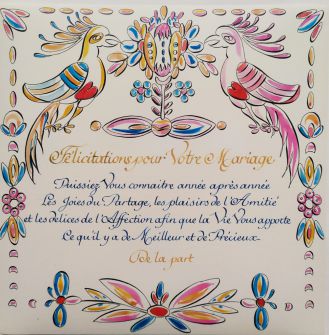 Félicitations pour Votre Mariage
Puissiez Vous connaitre année après année
Les Joies du Partage, les plaisirs de l'Amitié
et les délices de l'Affection afin que la Vie Vous apporte
Ce qu'il y a de Meilleur et de Précieux
De la part